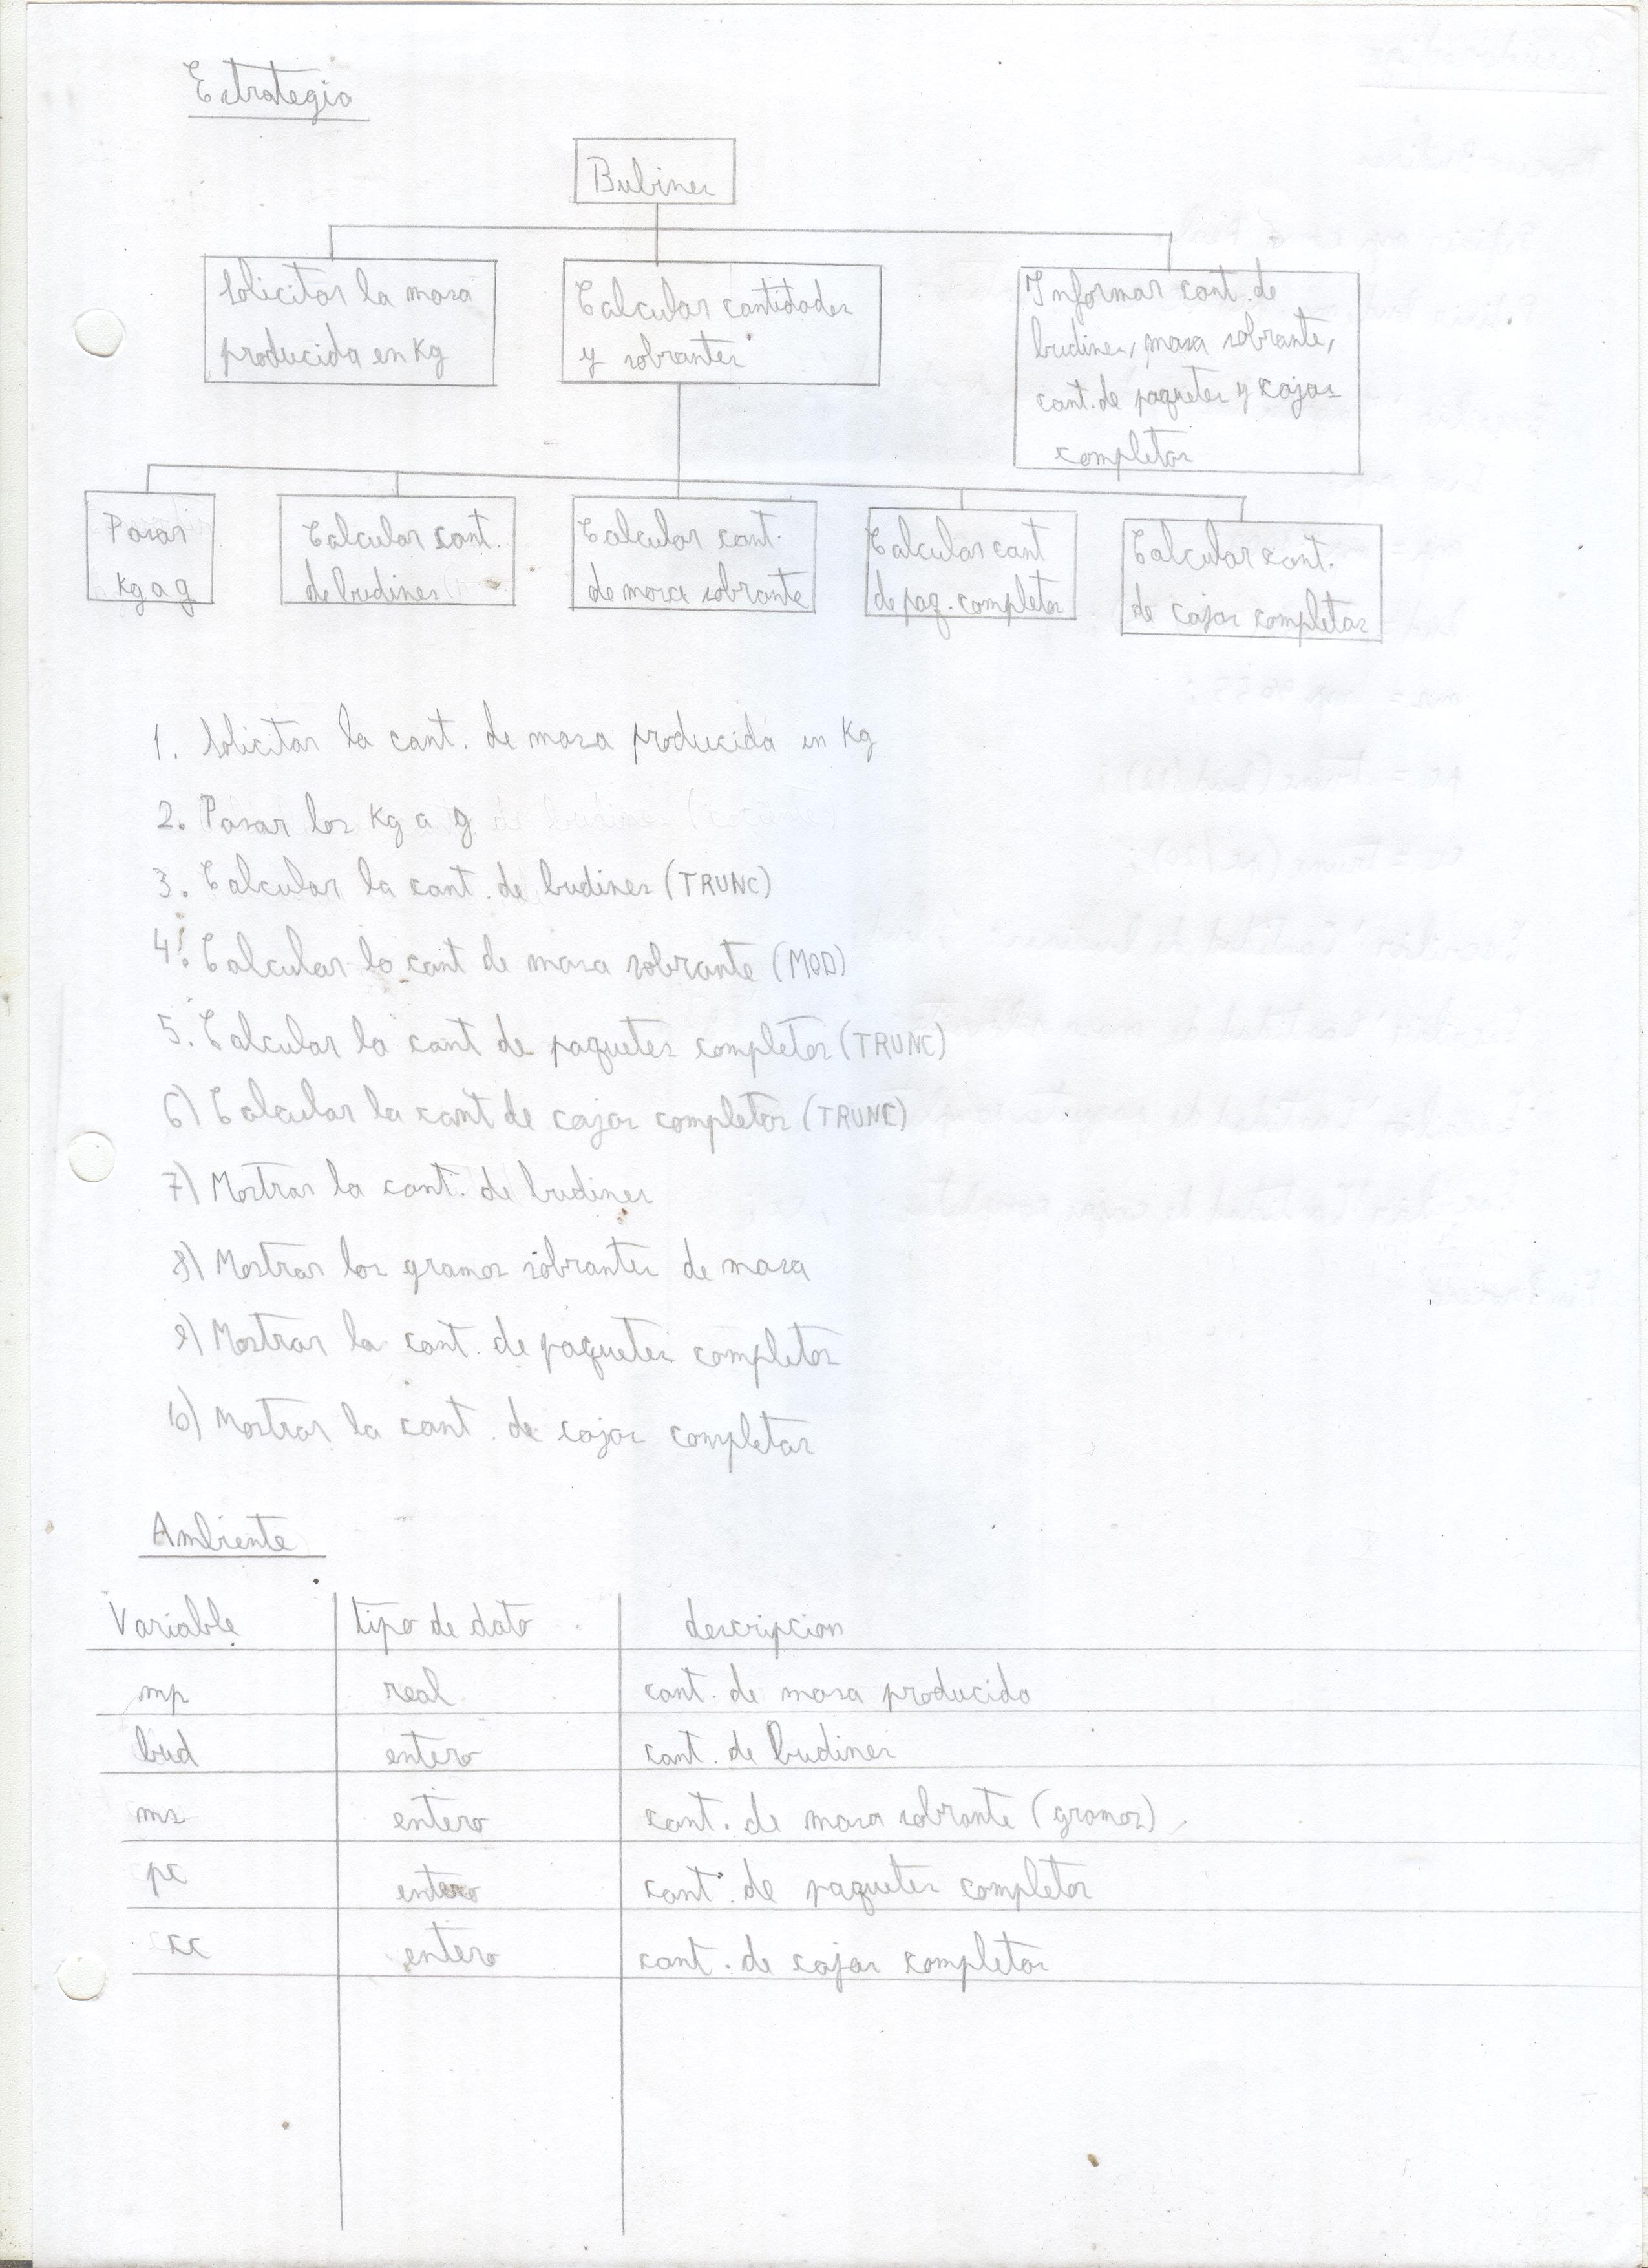 Estrategia
Bubines
Solicitar la masa
producida en Kg
Calcular cantidades
y sobrantes
Informar cant. de
budines, masa sobrante,
cant. de paquetes y cajas
completas
Pasar
Kg a g
Calcular cant.
de budines
Calcular cant.
de masa sobrante
Calcular cant
de paq. completos
Calcular cant.
de cajas completas
1. Solicitar la cant. de masa producida en Kg
2. Pasar los Kg a g
3. Calcular la cant. de budines (TRUNC)
4. Calcular la cant de masa sobrante (MOD)
5. Calcular la cant de paquetes completos (TRUNC)
6) Calcular la cant de cajas completas (TRUNC)
7) Mostrar la cant. de budines
8) Mostrar los gramos sobrantes de masa
9) Mostrar la cant. de paquetes completos
10) Mostrar la cant. de cajas completas
Ambiente
Variable tipo de dato descripcion
mp real cant. de masa producida
bud entero cant. de budines
ms entero cant. de masa sobrante (gramos)
pc entero cant. de paquetes completos
cc entero cant. de cajas completas